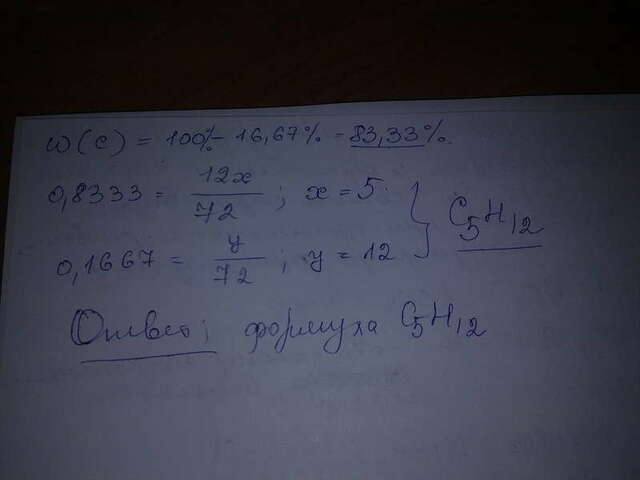 w(C) = 100% - 16,67% = 83,33%.
0,8333 = 12x/72 ; x = 5.
0,1667 = y/72 ; y = 12 } C₅H₁₂
Ответ: формула C₅H₁₂